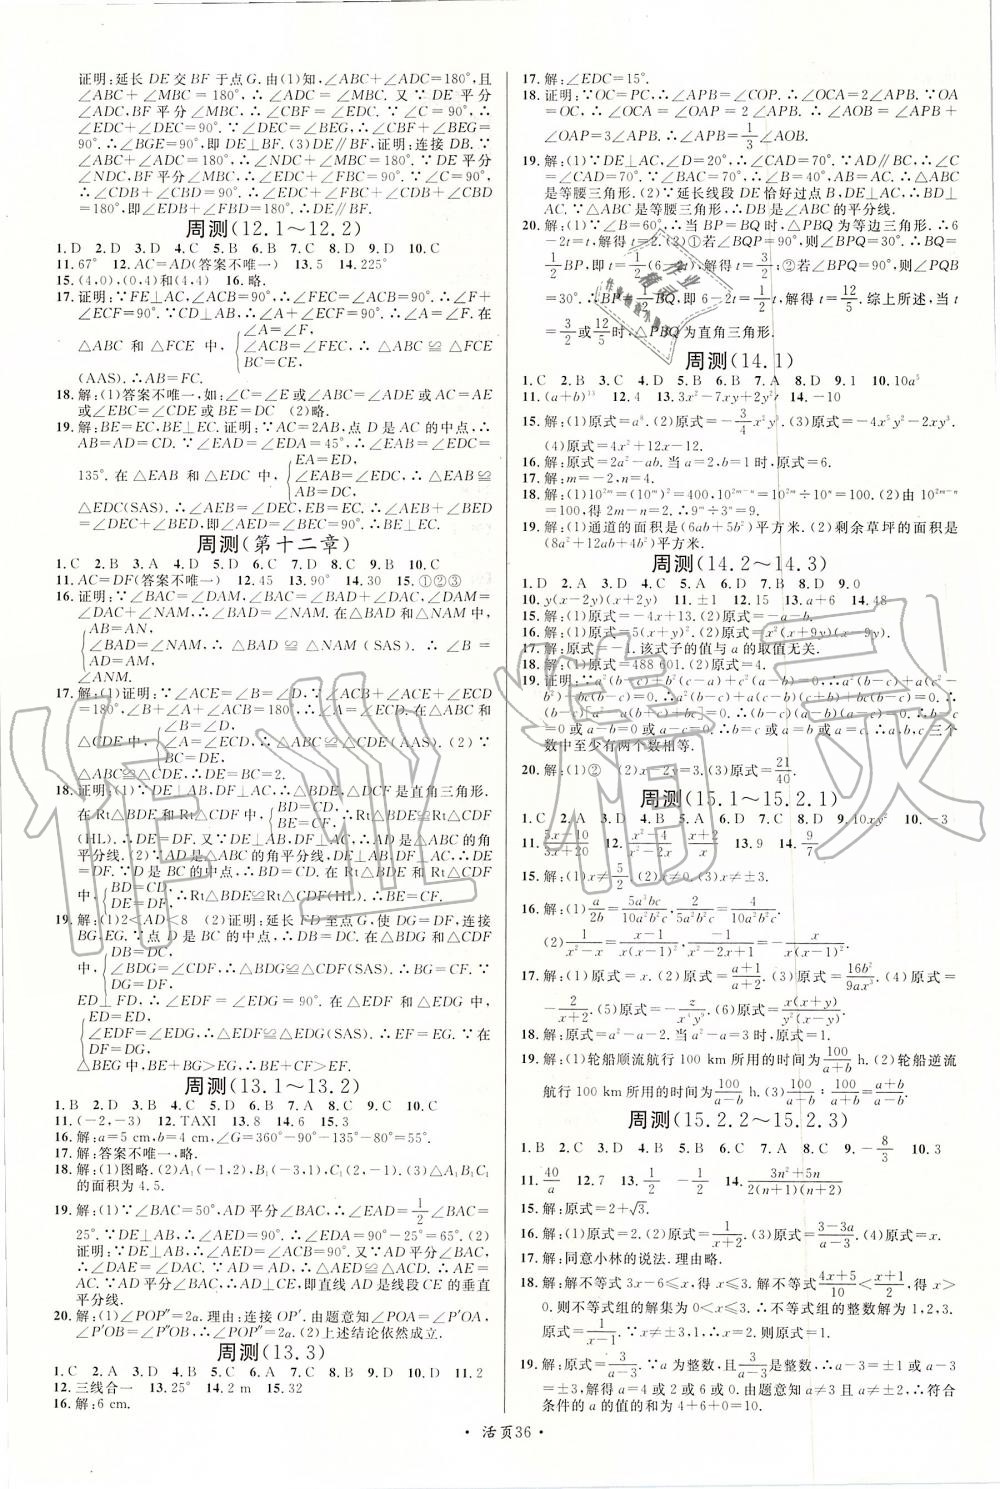 证明:延长 DE 交 BF 于点 G. 由(1)知, ∠ABC+∠ADC=180°, 且
∠ABC + ∠MBC = 180°, ∴ ∠ADC = ∠MBC. 又 ∵ DE 平分
∠ADC, BF 平分∠MBC, ∴ ∠CDE = ∠CBF. ∵ ∠C = 90°, ∴
∠EDC+∠DEC=90°. ∵ ∠DEC=∠BEG, ∴ ∠CBF+∠BEG=
90°. ∴ ∠BGE=90°, 即 DE⊥BF. (3)DE∥BF, 证明:连接 DB. ∵
∠ABC+∠ADC=180°, ∴ ∠NDC+∠MBC=180°. ∵ DE 平分
∠NDC, BF 平分∠MBC, ∴ ∠EDC+∠CBF=90°. ∵ ∠C=90°,
∴ ∠CDB+∠CBD=90°. ∴ ∠EDC+∠CDB+∠CBD+∠CBF
=180°, 即∠EDB+∠FBD=180°. ∴ DE∥BF.
周测(12.1～12.2)
1. D 2. D 3. D 4. C 5. B 6. B 7. D 8. D 9. D 10. C
11. 67° 12. AC=AD(答案不唯一) 13. 5 14. 225°
15. (4,0),(0,4)和(4,4) 16. 略.
17. 证明:∵ FE⊥AC, ∠ACB=90°, ∴ ∠FEC=∠ACB=90°. ∴ ∠F
+∠ECF=90°. 又∵ CD⊥AB, ∴ ∠A+∠ECF=90°. ∴ ∠A=∠F. 在
∠A=∠F,
△ABC 和 △FCE 中, ∠ACB=∠FEC, ∴ △ABC ≌ △FCE
BC=CE,
(AAS). ∴ AB=FC.
18. 解:(1)答案不唯一, 如:∠C=∠E 或∠ABC=∠ADE 或 AC=AE
或∠EBC=∠CDE 或 BE=DC (2)略.
19. 解:BE=EC, BE⊥EC. 证明:∵ AC=2AB, 点 D 是 AC 的中点, ∴
AB=AD=CD. ∵ ∠EAD=∠EDA=45°, ∴ ∠EAB=∠EDC=
EA=ED,
135°. 在 △EAB 和 △EDC 中, ∠EAB=∠EDC, ∴ △EAB ≌
AB=DC,
△EDC(SAS). ∴ ∠AEB=∠DEC, EB=EC. ∴ ∠AEB+∠BED
=∠DEC+∠BED, ∴ ∠BEC=∠AED=90°. ∴ BE⊥EC.
周测(第十二章)
1. C 2. B 3. A 4. C 5. B 6. C 7. D 8. D 9. B 10. C
11. AC=DF(答案不唯一) 12. 45 13. 90° 14. 30 15. ①②③
16. 证明:∵ ∠BAC=∠DAM, ∠BAC=∠BAD+∠DAC, ∠DAM=
∠DAC+∠NAM, ∴ ∠BAD=∠NAM. 在△BAD 和△NAM 中,
AB=AN,
∠BAD=∠NAM, ∴ △BAD≌△NAM (SAS). ∴ ∠B =
AD=AM,
∠ANM.
17. 解:(1)证明:∵ ∠ACE+∠ACB=∠B+∠A+∠ACB=∠ECD
=180°, ∠B+∠A=∠ACE. ∴ ∠A=∠ECD. 在△ABC 和
∠B=∠D,
△CDE 中, ∠A=∠ECD, ∴ △ABC≌△CDE(AAS). (2)∵
BC=DE,
△ABC≌△CDE, ∴ DE=BC=2.
18. 证明:(1)∵ DE⊥AB, DF⊥AC, ∴ △BDE, △CDF 是直角三角形.
在 Rt△BDE 和 Rt△CDF 中, BD=CD, BE=CF, ∴ Rt△BDE≌Rt△CDF
(HL). ∴ DE=DF. 又∵ DE⊥AB, DF⊥AC, ∴ AD 是△ABC 的角
平分线. (2)∵ AD 是△ABC 的角平分线, ∴ DE=DF.
∵ D 是 BC 的中点, ∴ BD=CD. 在 Rt△BDE 和 Rt△CDF
中, BD=CD, DE=DF, ∴ Rt△BDE≌Rt△CDF(HL). ∴ BE=CF.
19. 解:(1)2<AD<8 (2)证明:延长 FD 至点 G, 使 DG=DF, 连接
BG, EG. ∵ 点 D 是 BC 的中点, ∴ DB=DC. 在△BDG 和△CDF
DB=DC,
中, ∠BDG=∠CDF, ∴ △BDG≌△CDF(SAS). ∴ BG=CF. ∵
DG=DF,
ED⊥FD, ∴ ∠EDF=∠EDG=90°. 在△EDF 和△EDG 中,
ED=ED,
∠EDF=∠EDG, ∴ △EDF≌△EDG(SAS). ∴ EF=EG. ∵ 在
DF=DG,
△BEG 中, BE+BG>EG, ∴ BE+CF>EF.
周测(13.1～13.2)
1. B 2. D 3. D 4. A 5. C 6. C 7. A 8. B 9. C 10. C
11. (-2,-3) 12. TAXI 13. 8 14. 6 15. 3
16. 解:a=5 cm, b=4 cm, ∠G=360°-90°-135°-80°=55°.
17. 解:答案不唯一, 略.
18. 解:(1)图略. (2)A₁(-1,2), B₁(-3,1), C₁(2,-1). (3)△A₁B₁C₁
的面积为 4.5.
19. 解:(1)∵ ∠BAC=50°, AD 平分∠BAC, ∴ ∠EAD=1/2∠BAC=
25°. ∵ DE⊥AB, ∴ ∠AED=90°. ∴ ∠EDA=90°-25°=65°. (2)
证明:∵ DE⊥AB, ∴ ∠AED=∠ACB=90°. 又∵ AD 平分∠BAC,
∴ ∠DAE=∠DAC. 又∵ AD=AD, ∴ △AED≌△ACD. ∴ AE=
AC. ∵ AD 平分∠BAC, ∴ AD⊥CE, 即直线 AD 是线段 CE 的垂直
平分线.
20. 解:(1)∠POP″=2α. 理由:连接 OP′. 由题意知∠POA=∠P′OA,
∠P′OB=∠P″OB, ∴ ∠POP″=2α. (2)上述结论依然成立.
周测(13.3)
1. C 2. A 3. D 4. C 5. A 6. B 7. C 8. C 9. D 10. D 11. 2
12. 三线合一 13. 25° 14. 2 m 15. 32
16. 解:6 cm.
17. 解:∠EDC=15°.
18. 证明:∵ OC=PC, ∴ ∠APB=∠COP. ∴ ∠OCA=2∠APB. ∵ OA
=OC, ∴ ∠OCA = ∠OAP = 2∠APB. ∴ ∠AOB = ∠APB +
∠OAP=3∠APB. ∴ ∠APB=1/3∠AOB.
19. 解:(1)∵ DE⊥AC, ∠D=20°, ∴ ∠CAD=70°. ∵ AD∥BC, ∴ ∠C
=∠CAD=70°. ∵ ∠BAC=70°, ∴ ∠BAC=∠C. ∴ AB=BC. ∴ △ABC
是等腰三角形. (2)∵ 延长线段 DE 恰好过点 B, DE⊥AC, ∴ BD⊥
AC. ∵ △ABC 是等腰三角形, ∴ DB 是∠ABC 的平分线.
20. 解:(1)∵ ∠B=60°, ∴ 当 BP=BQ 时, △PBQ 为等边三角形. ∴ 6
-2t=t, 解得 t=2. (2)①若∠BQP=90°, ∵ ∠B=60°, ∴ ∠BPQ=30°. ∴ BQ=
1/2BP, 即 t=1/2(6-2t), 解得 t=3/2; ②若∠BPQ=90°, 则∠BQP
=30°. ∴ BP=1/2BQ, 即 6-2t=1/2t, 解得 t=12/5. 综上所述, 当 t=
3/2 或 12/5 时, △PBQ 为直角三角形.
周测(14.1)
1. C 2. B 3. C 4. D 5. B 6. B 7. A 8. D 9. 1 10. 10a⁵
11. (a+b)¹³ 12. 4 13. 3x²-7xy+2y² 14. -10
15. 解:(1)原式=a⁶. (2)原式=-3/4x²y². (3)原式=-4x⁵y²-2xy³.
(4)原式=4x²+12x-12.
16. 解:原式=2a²-ab. 当 a=2, b=1 时, 原式=6.
17. 解:m=-2, n=4.
18. 解:(1)10²ᵐ=(10ᵐ)²=20²=400, 10²ᵐ⁻ⁿ=100. (2)由 10²ᵐ⁻ⁿ
=100, 得 2m-n=2. ∴ 9ᵐ÷3ⁿ=9.
19. 解:(1)通道的面积是(6ab+5b²)平方米. (2)剩余草坪的面积是
(8a²+12ab+4b²)平方米.
周测(14.2～14.3)
1. D 2. D 3. B 4. C 5. A 6. D 7. B 8. D 9. 0
10. y(x-2)(x+2) 11. ±1 12. 15 13. a+6 14. 48
15. 解:(1)原式=-4x+13. (2)原式=-a-b.
16. 解:(1)原式=-5(x+y)². (2)原式=x²(x+9y)(x-9y).
17. 解:原式=-1. 该式子的值与 a 的取值无关.
18. 解:(1)原式=488 601. (2)原式=4.
数中至少有两个数相等.
20. 解:(1)② (2)原式=3. (3)原式=21/40.
周测(15.1～15.2.1)
1. C 2. A 3. D 4. B 5. A 6. B 7. D 8. C 9. 10xy² 10. -3
11. 5x-10/3x+20 12. x²-4/x²-4x x+2/x 13. 9 14. 9/7
15. 解:(1)x≠5/2. (2)x≠0. (3)x≠±3.
16. 解:(1)a/2b=5a³bc/10a²b²c, 2/5a²b²c=4/10a²b²c.
(2)1/x²-x=x-1/x(x-1)², 1/x²-2x+1=x/x(x-1)².
17. 解:(1)原式=x. (2)原式=a+1/a+2. (3)原式=16b²/9ax³. (4)原式=
-2/x+5. (5)原式=-z/x⁴y⁹. (6)原式=x(x+y)/y(x-y).
18. 解:原式=a²-a-2. 当 a=3 时, 原式=4.
19. 解:(1)轮船顺流航行 100 km 所用的时间为100/a+b h. (2)轮船逆流
航行 100 km 所用的时间为100/a-b h. 100/a-b÷100/a+b=a+b/a-b.
周测(15.2.2～15.2.3)
1. B 2. C 3. C 4. D 5. D 6. A 7. A 8. C 9. -8/3 10. 3
11. 40/a 12. 7 13. 1/2 14. 3n²+5n/2(n+1)(n+2)
15. 解:原式=2+√3.
16. 解:(1)原式=2. (2)原式=1/x+2. (3)原式=3-3a/a-3.
17. 解:同意小林的说法. 理由略.
18. 解:解不等式 3x-6≤x, 得 x≤3. 解不等式4x+5/10<x+1/2, 得 x>
0. 则不等式组的解集为 0<x≤3. ∴ 不等式组的整数解为 1,2,3.
原式=1/x-1. ∵ x≠±3, 1, ∴ x=2. ∴ 原式=1.
19. 解:原式=3/a-3. ∵ a 为整数, 且3/a-3是整数, ∴ a-3=±1 或 a-3
=±3, 解得 a=4 或 2 或 6 或 0. 由题意知 a≠3 且 a≠±2, ∴ 符合
条件的 a 的值的和为 4+6=10.
• 活页36 •
作业精灵